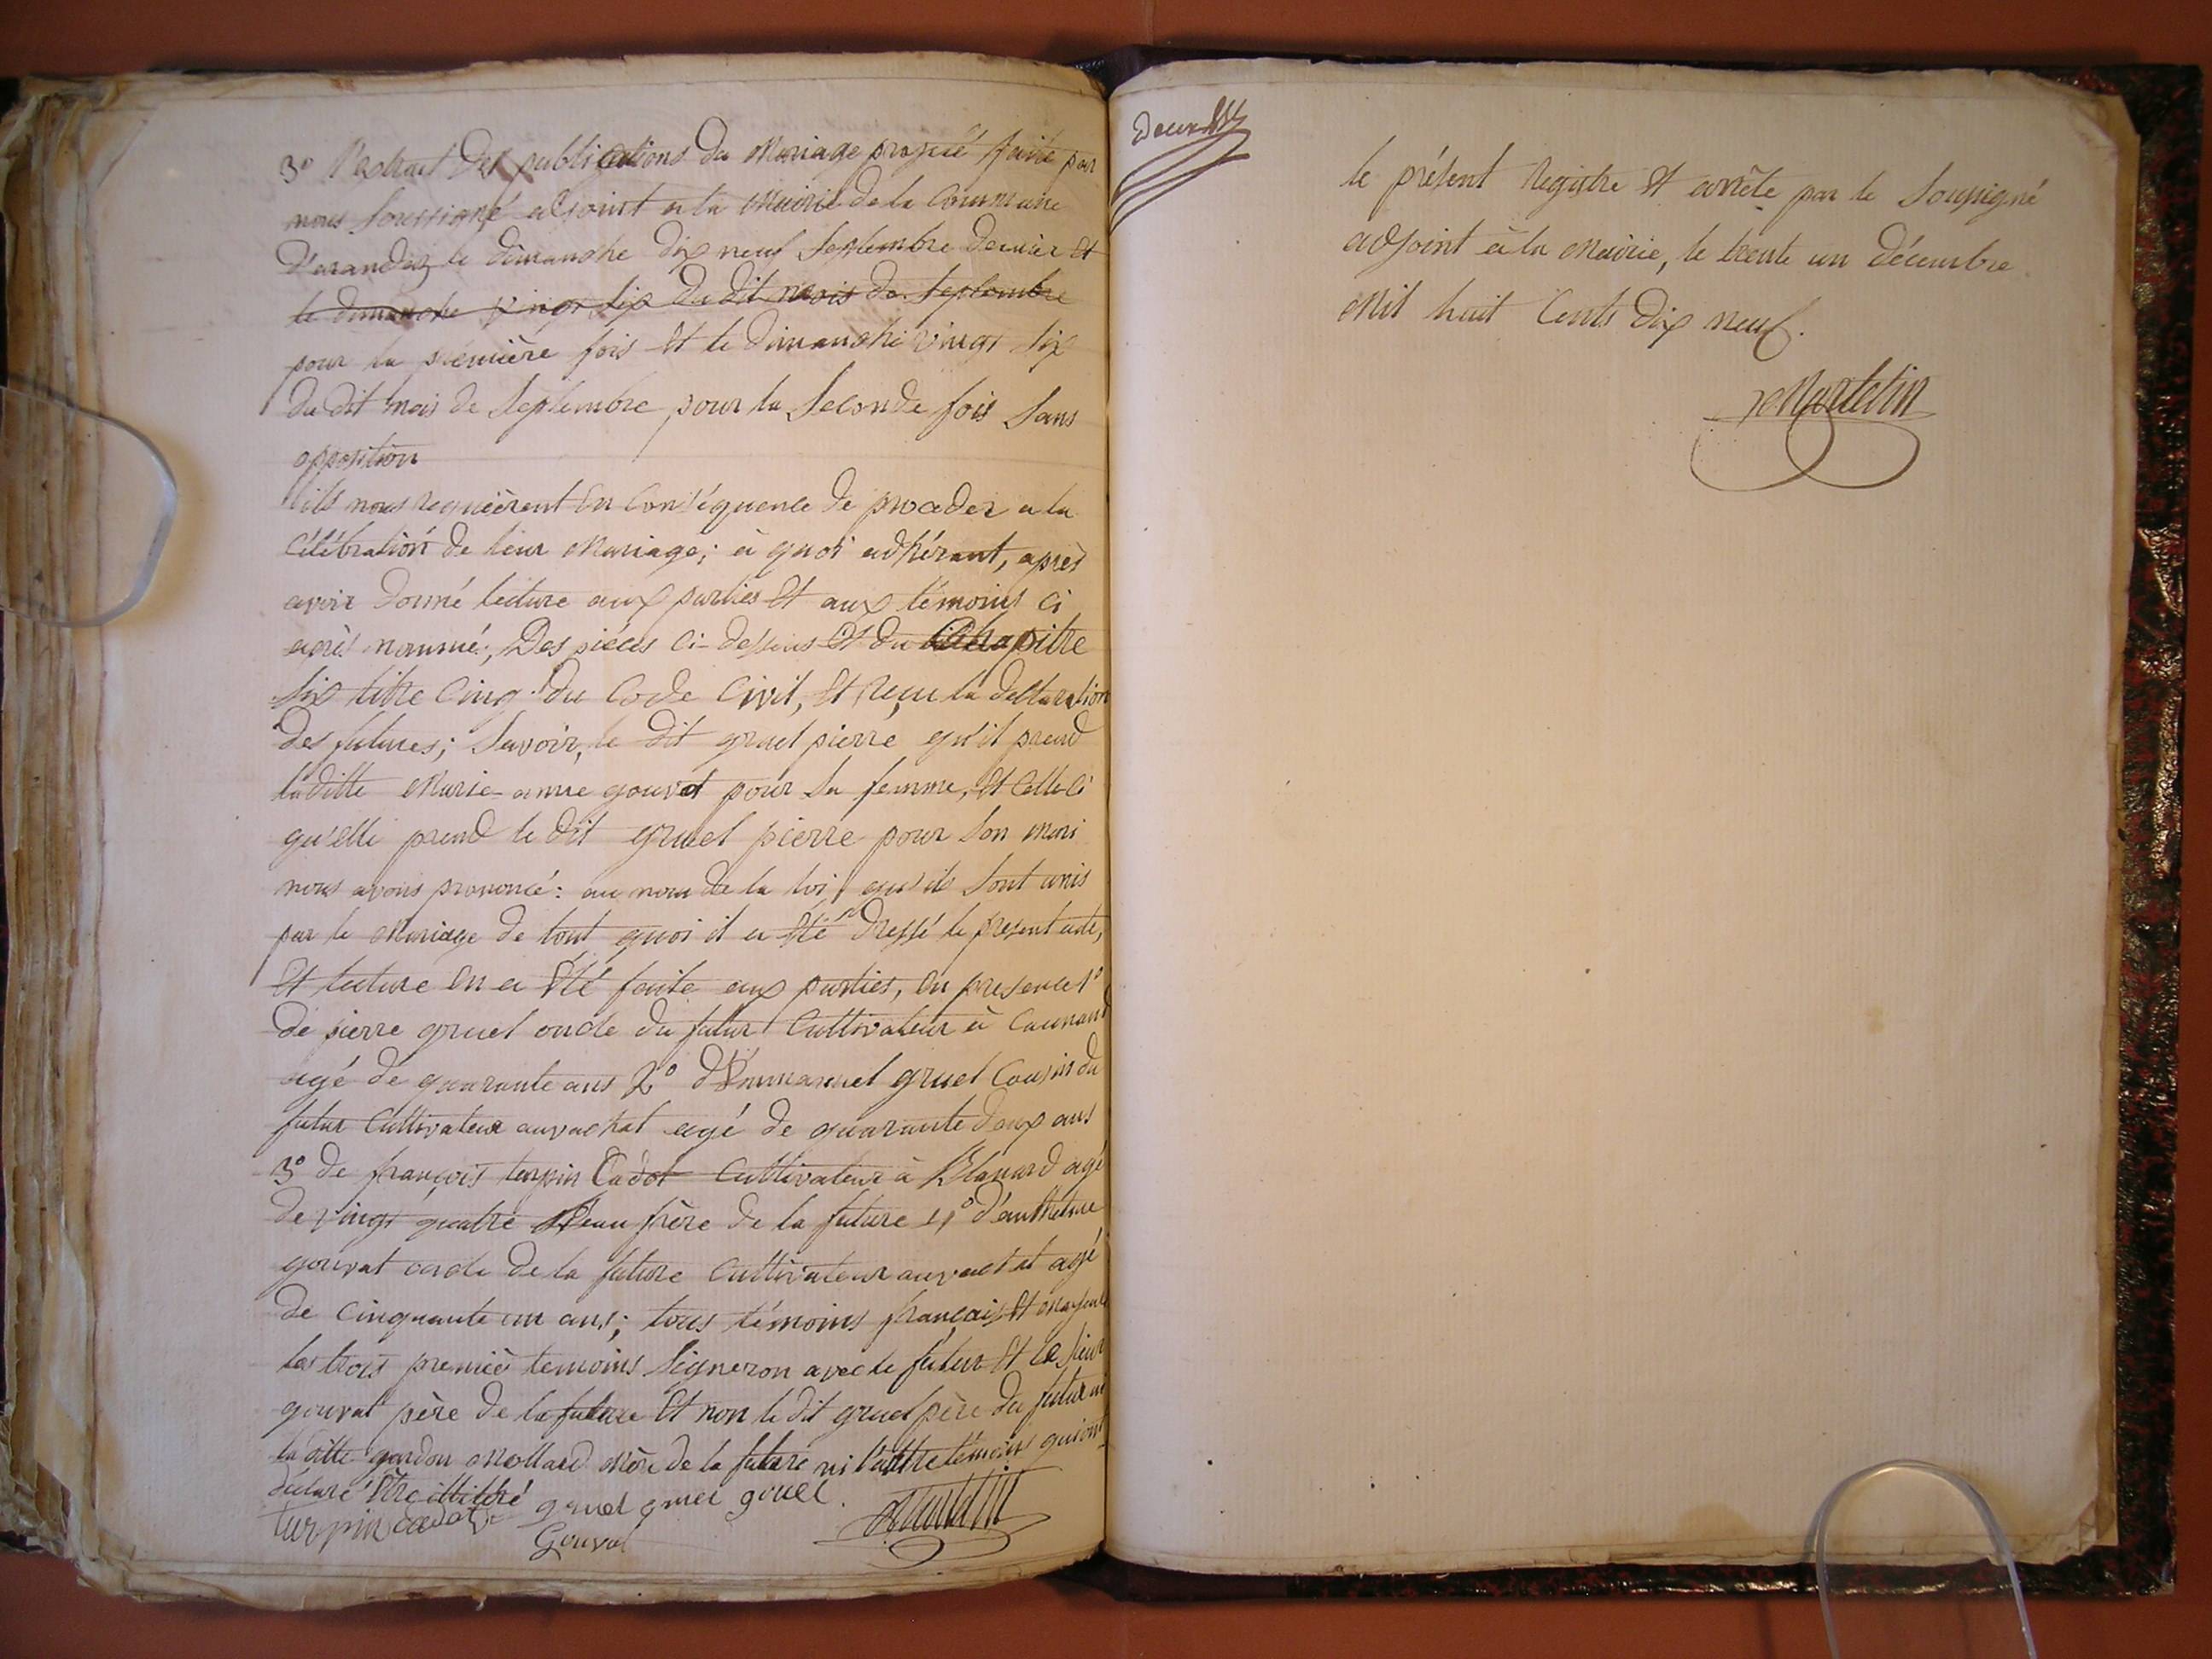 3° l'extrait des publications du mariage projeté faite par
nous soussigné adjoint a la mairie de la commune
d'arandas le dimanche dix neuf septembre dernier et
le dimanche vingt six du dit mois de septembre
pour la première fois et le dimanche vingt six
du dit mois de septembre pour la seconde fois sans
opposition
ils nous requièrent en conséquence de proceder a la
célébration de leur mariage; à quoi adhérant, après
avoir donné lecture aux parties et aux témoins ci
après nommé, des pièces ci-dessus et du chapitre
six titre cinq du code civil, et reçu la déclaration
des futures; savoir, le dit gruel pierre qu'il prend
laditte marie-anne gouvat pour sa femme, et celle ci
qu'elle prend le dit gruel pierre pour son mari
nous avons prononcé: au nom de la loi qu'ils sont unis
par le mariage de tout quoi il a été dressé le present acte,
et lecture en a été faite aux parties, en presence 1°
de pierre gruel oncle du futur cultivateur à
agé de quarante ans 2° d'Emmanuel gruel cousin du
futur cultivateur auvachat agé de quarante deux ans
3° de françois turpin Cadot cultivateur à agé
de vingt quatre beau frère de la future 4° d'anthelme
gouvat oncle de la future cultivateur auvachat agé
de cinquante un ans; tous témoins français et majeurs
les trois premiè temoins signeron avec le futur et le sieur
gouvat père de la future et non le dit gruel père du futur ni
la ditte gardon mollard mère de la future ni l'autre témoins qui ont
déclaré être illitéré gruel gruel gruel.
turpin cadot
Gouvat
Martelin
Deux
le présent registre et arrête par le soussigné
adjoint à la mairie, le trente un décembre
mil huit cents dix neuf.
Martelin